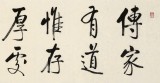 傳家
有道
惟存
厚處